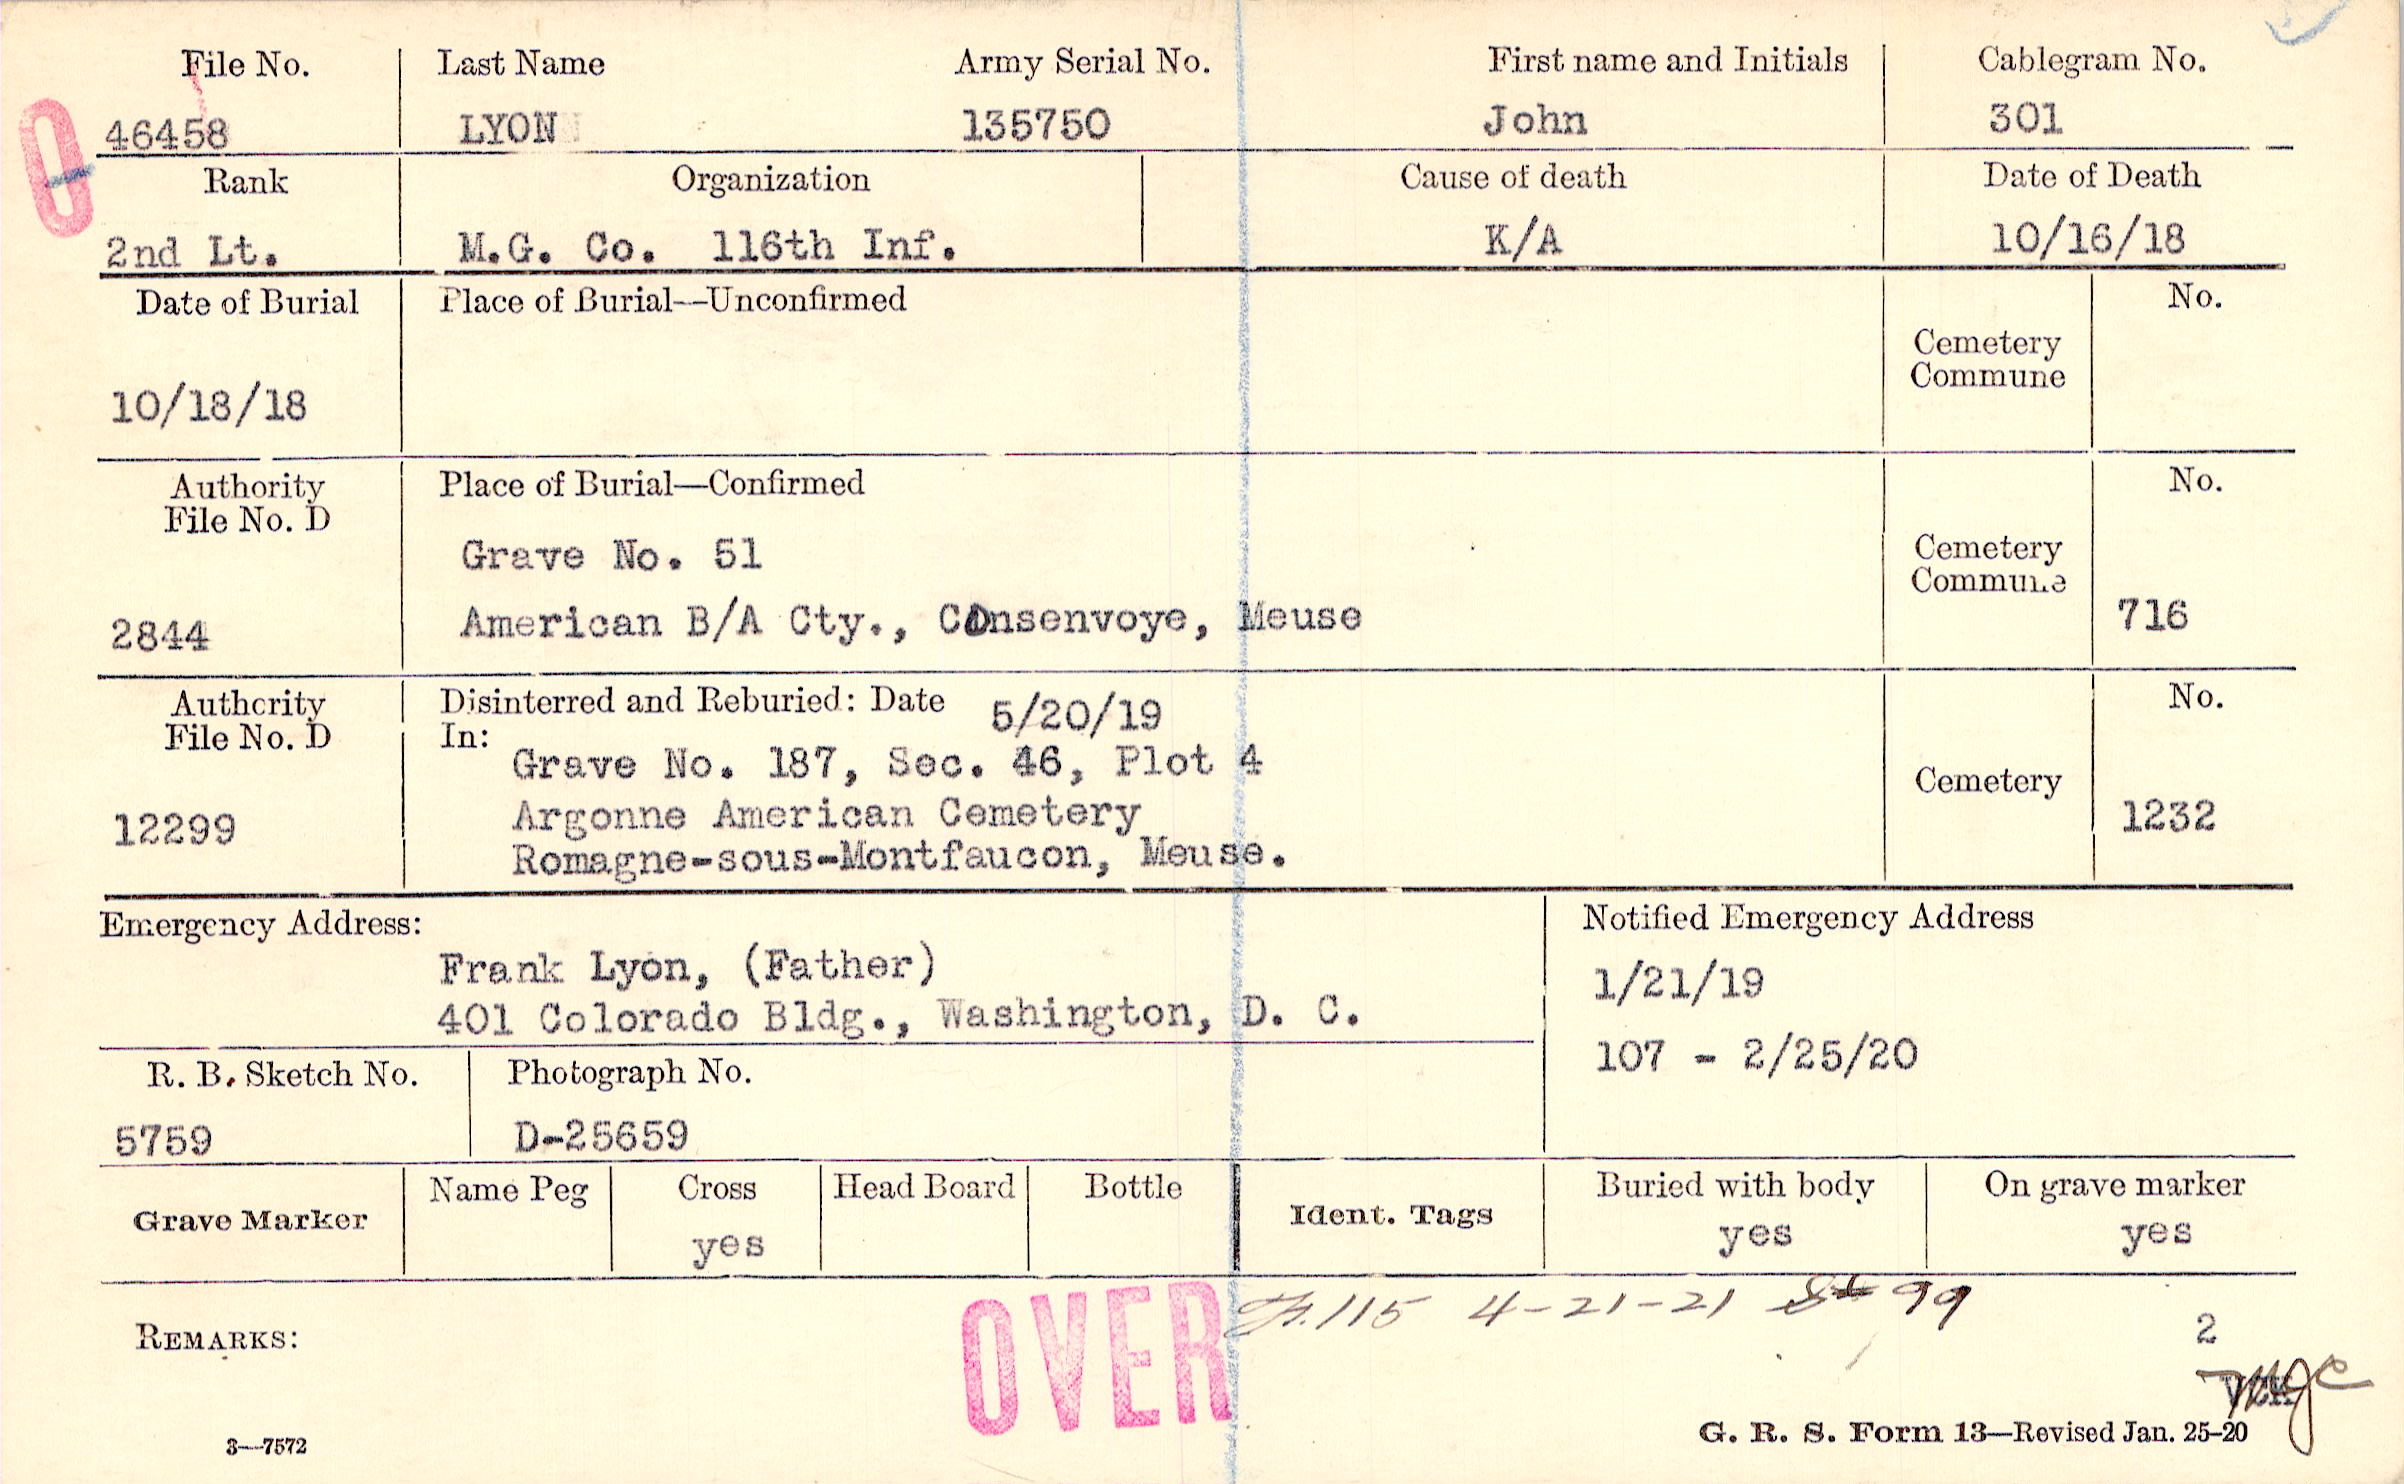 File No. Last Name Army Serial No. First name and Initials Cablegram No.
46458 LYON 135750 John 301
Rank Organization Cause of death Date of Death
2nd Lt. M.G. Co. 116th Inf. K/A 10/16/18
Date of Burial Place of Burial—Unconfirmed No.
Cemetery
Commune
10/18/18
Authority Place of Burial—Confirmed No.
File No. D
Grave No. 51 Cemetery
Commune
2844 American B/A Cty., Consenvoye, Meuse 716
Authority Disinterred and Reburied: Date 5/20/19 No.
File No. D In:
Grave No. 187, Sec. 46, Plot 4
Cemetery
12299 Argonne American Cemetery 1232
Romagne-sous-Montfaucon, Meuse.
Emergency Address: Notified Emergency Address
Frank Lyon, (Father) 1/21/19
401 Colorado Bldg., Washington, D. C.
107 - 2/25/20
R. B. Sketch No. Photograph No.
5759 D-25659
Grave Marker Name Peg Cross Head Board Bottle Ident. Tags Buried with body On grave marker
yes yes yes
115 4-21-21 99
REMARKS: OVER 2
3—7572 G. R. S. Form 13—Revised Jan. 25-20